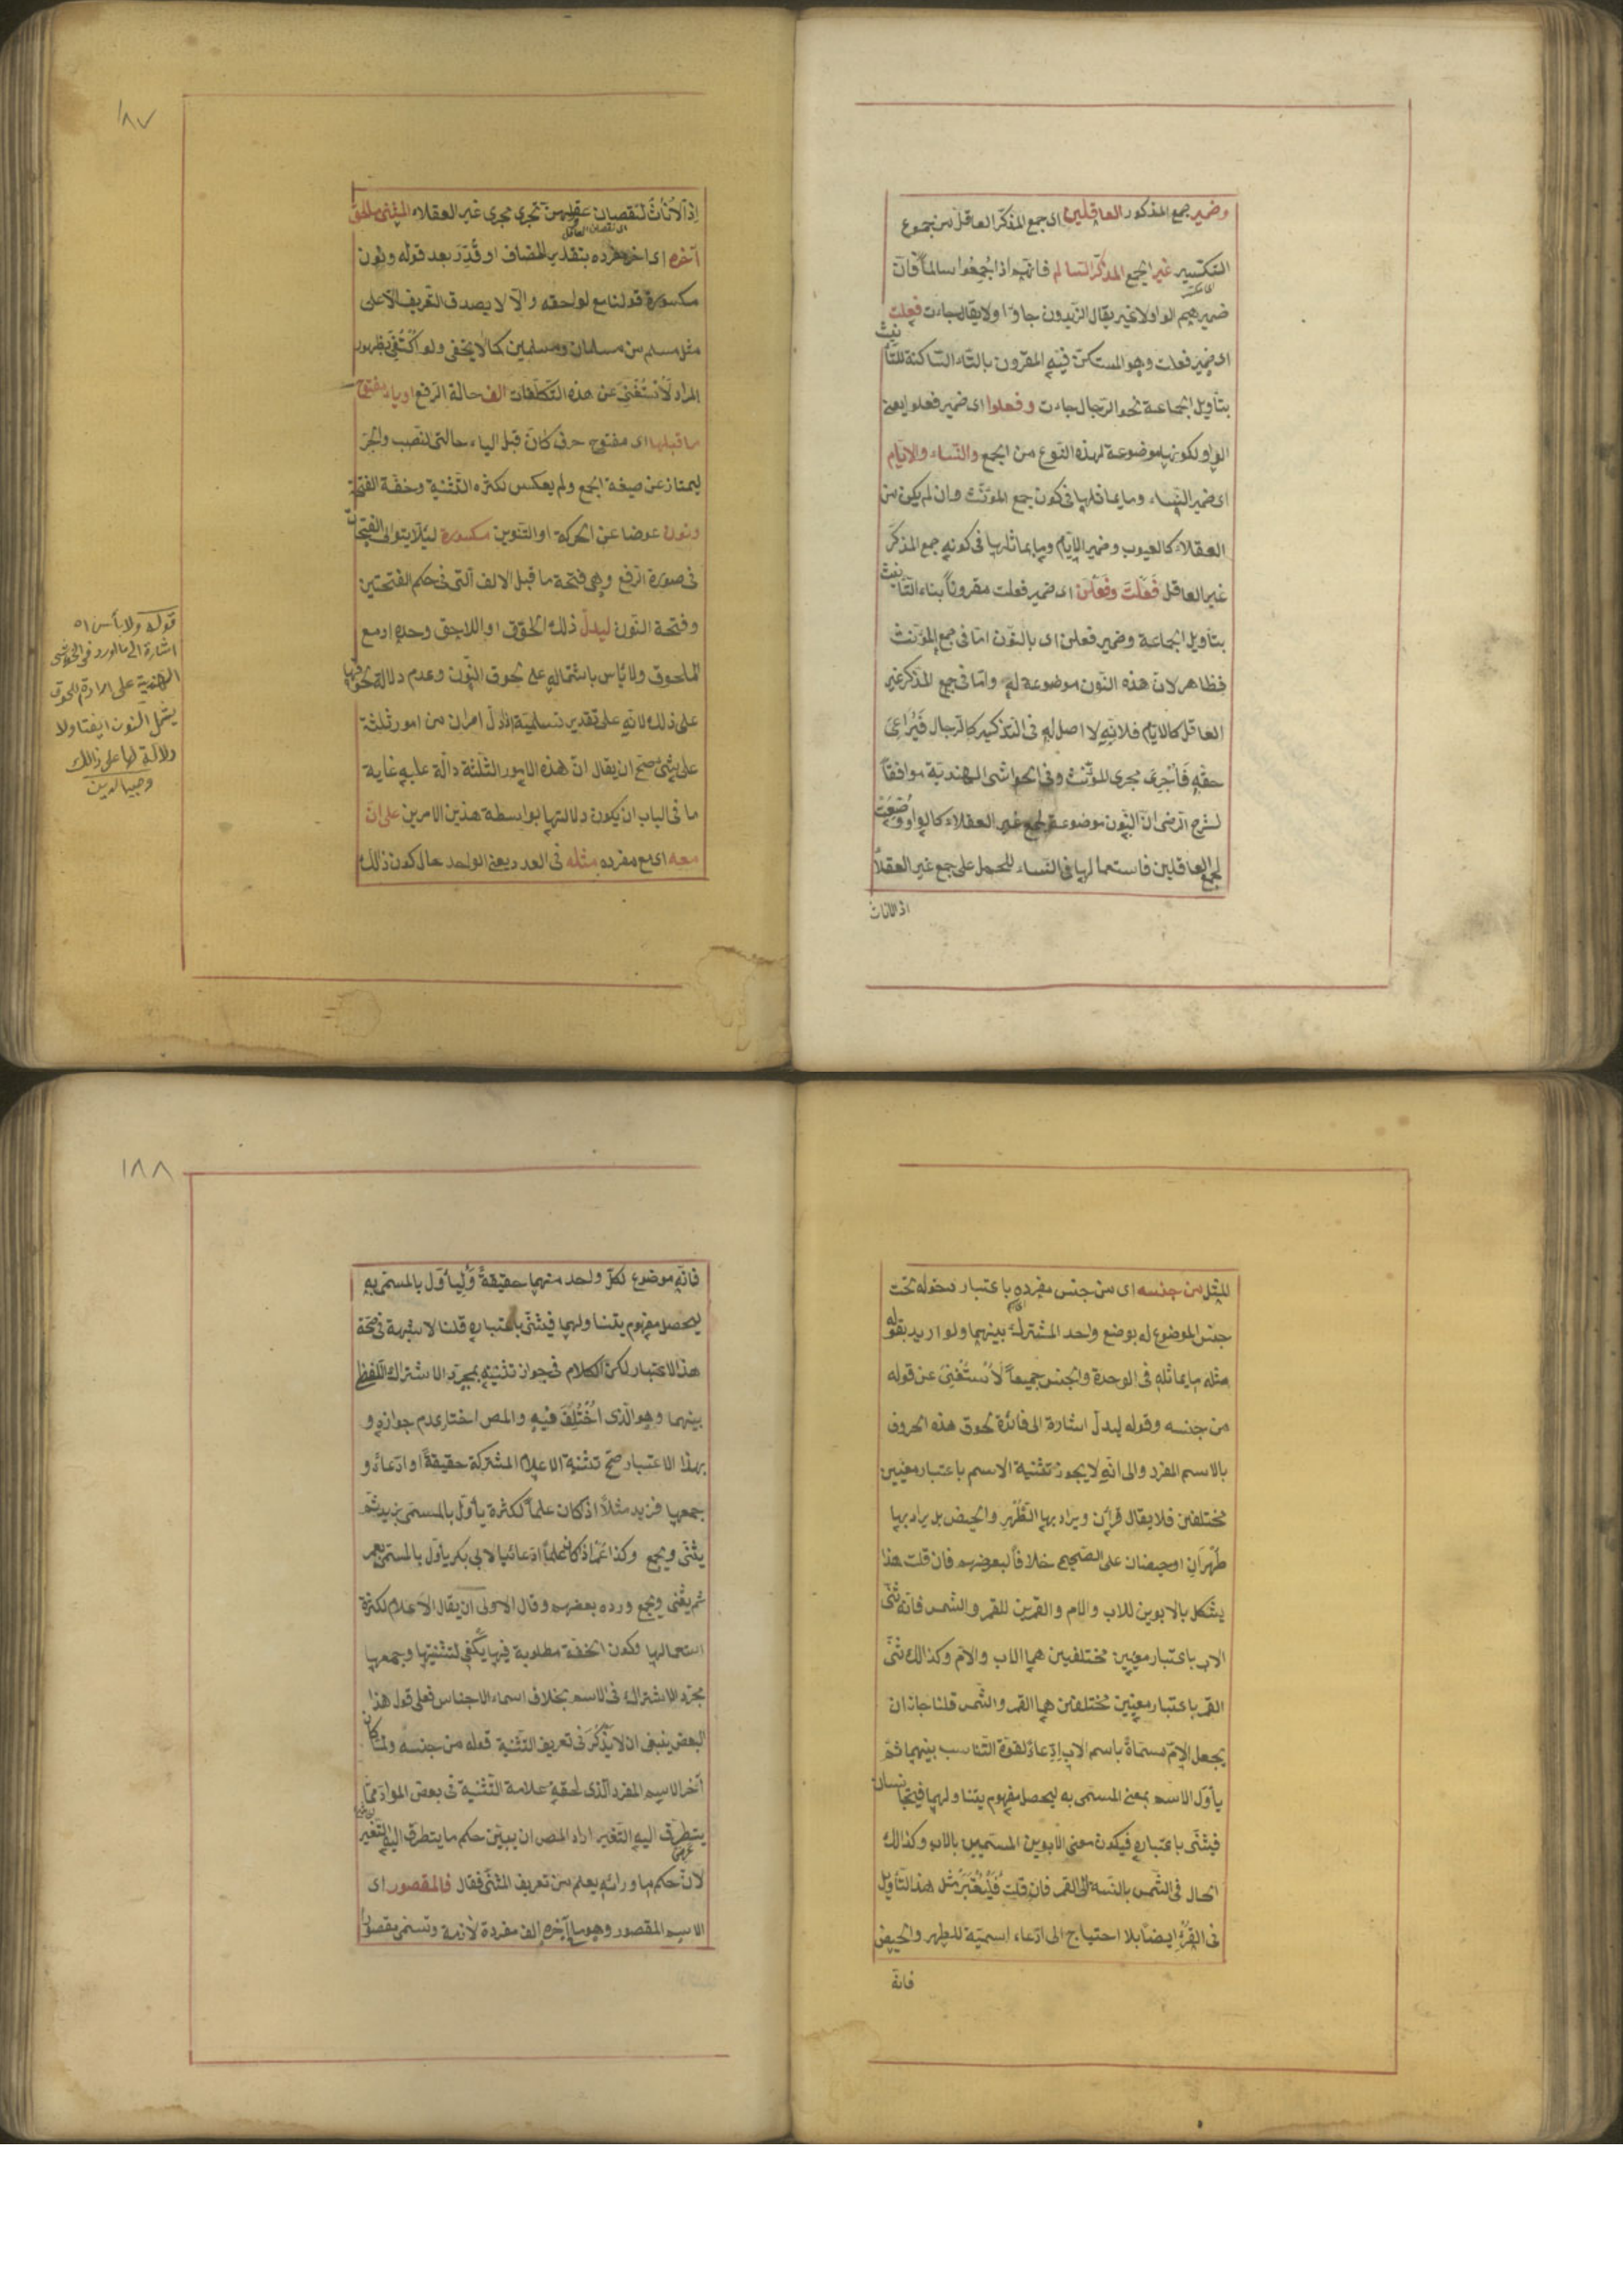 وضمير جمع المذكور العاقلين اى جمع المذكر العاقل من جموع
التكسير غير الجمع المذكر السالم فانهم اذا جمعوا سالما فان
ضميرهم الواو لا غير يقال الزيدون جاؤا ولا يقال جاءت فعلت
اى ضمير فعلت وهو المستكن فيه المقرون بالتاء الساكنة للتأنيث
بتأويل الجماعة نحو الرجال جاءت وفعلوا اى ضمير فعلوا يعنى
الواو لكونها موضوعة لهذه النوع من الجمع والنساء والايام
اى ضمير النساء وما يماثلها فى كون جمع المؤنث وان لم يكن من
العقلاء كالعيوب وضمير الايام وما يماثلها فى كونه جمع المذكر
غير العاقل فعلت وفعلن اى ضمير فعلت مقرونا بتاء التأنيث
بتأويل الجماعة وضمير فعلن اى بالنون اما فى جمع المؤنث
فظاهر لان هذه النون موضوعة له واما فى جمع المذكر غير
العاقل كالايام فلانه لا اصل له فى التذكير كالرجال فيراعى
حقه فاجرى مجرى المؤنث وفى الحواشى الهندية موافقا
لشرح الرضى ان النون موضوعة لجمع غير العقلاء كالواو وضعت
لجمع العاقلين فاستعمالها فى النساء للحمل على جمع غير العقلاء
اذ الاناث
١٨٧
اذ الاناث لنقصان عقلهن تجرى مجرى غير العقلاء المثنى ما لحق
آخره اى اخر مفرده بتقدير المضاف او قدر بعد قوله ونون
مكسورة قولنا مع لواحقه والا لا يصدق التعريف الا على
مثل مسلم من مسلمان ومسلمين كما لا يخفى ولو اكتفى بظهور
المراد لاستغنى عن هذه التكلفات الف حالة الرفع او ياء مفتوح
ما قبلها اى مفتوح حرف كان قبل الياء حالتى النصب والجر
ليمتاز عن صيغة الجمع ولم يعكس لكثرة التثنية وخفة الفتحة
ونون عوضا عن الحركة او التنوين مكسورة لئلا يتوالى الفتحات
فى صورة الرفع وهى فتحة ما قبل الالف التى فى حكم الفتحتين
وفتحة النون ليدل ذلك اللحوق او اللاحق وحده او مع
الملحوق ولا بأس باشتماله على لحوق النون وعدم دلالة لحوقها
على ذلك لانه على تقدير تسليمة اذا دل امران من امور ثلثة
على شئ صح ان يقال ان هذه الامور الثلثة دالة عليه غاية
ما فى الباب ان يكون دلالتها بواسطة هذين الامرين على ان
معه اى مع مفرده مثله فى العدد يعنى الواحد حال كون ذلك
قوله ولا بأس اه
اشارة الى ما اورد فى الحواشى
الهندية على ارادة اللحوق
يشمل النون ايضا ولا
دلالة لها على ذالك
وجيه الدين
المثل من جنسه اى من جنس مفرده باعتبار دخوله تحت
جنس الموضوع له بوضع واحد المشترك بينهما ولو اريد بقوله
مثله ما يماثله فى الوحدة والجنس جميعا لاستغنى عن قوله
من جنسه وقوله ليدل اشارة الى فائدة لحوق هذه الحروف
بالاسم المفرد والى انه لا يجوز تثنية الاسم باعتبار معنيين
مختلفين فلا يقال قرأن ويراد بها الطهر والحيض بل يراد بها
طهران او حيضان على الصحيح خلافا لبعضهم فان قلت هذا
يشكل بالابوين للاب والام والقمرين للقمر والشمس فانه ثنى
الاب باعتبار معنيين مختلفين هما الاب والام وكذالك ثنى
القمر باعتبار معنيين مختلفين هما القمر والشمس قلنا جاز ان
يجعل الام مسماة باسم الاب ادعاء لقوة التناسب بينهما ثم
يأول الاسم بمعنى المسمى به ليحصل مفهوم يتناولهما فيتجانسان
فيثنى باعتباره فيكون معنى الابوين المسميين بالاب وكذالك
الحال فى الشمس بالنسبة الى القمر فان قلت فليعتبر مثل هذا التأويل
فى القرء ايضا بلا احتياج الى ادعاء اسمية للطهر والحيض
فانه
١٨٨
فانه موضوع لكل واحد منهما حقيقة وليأول بالمسمى به
ليحصل مفهوم يتناولهما فيثنى باعتباره قلنا لا شبهة فى صحة
هذا الاعتبار لكن الكلام فى جواز تثنيته بمجرد الاشتراك اللفظى
بينهما وهو الذى اختلف فيه والمص اختار عدم جوازه و
بهذا الاعتبار صح تثنية الاعلام المشتركة حقيقة او ادعاء و
جمعها فزيد مثلا اذ كان علما لكثرة يأول بالمسمى بزيد ثم
يثنى ويجمع وكذا عمر اذ كان علما ادعائيا لابى بكر يأول بالمسمى بعمر
ثم يثنى ويجمع ورده بعضهم وقال الاولى ان يقال الاعلام لكثرة
استعمالها وكون الخفة مطلوبة فيها يكفى لتثنيتها وجمعها
مجرد الاشتراك فى الاسم بخلاف اسماء الاجناس فعلى قول هذا
البعض ينبغى ان لا يذكر فى تعريف التثنية قوله من جنسه ولما كان
آخر الاسم المفرد الذى لحقه علامة التثنية فى بعض المواد مما
يتطرق اليه التغير اراد المص ان يبين حكم ما يتطرق اليه التغير
لان حكم ما ورائه يعلم من تعريف المثنى فقال فالمقصور اى
الاسم المقصور وهو ما آخره الف مفردة لازمة وتسمى مقصورا